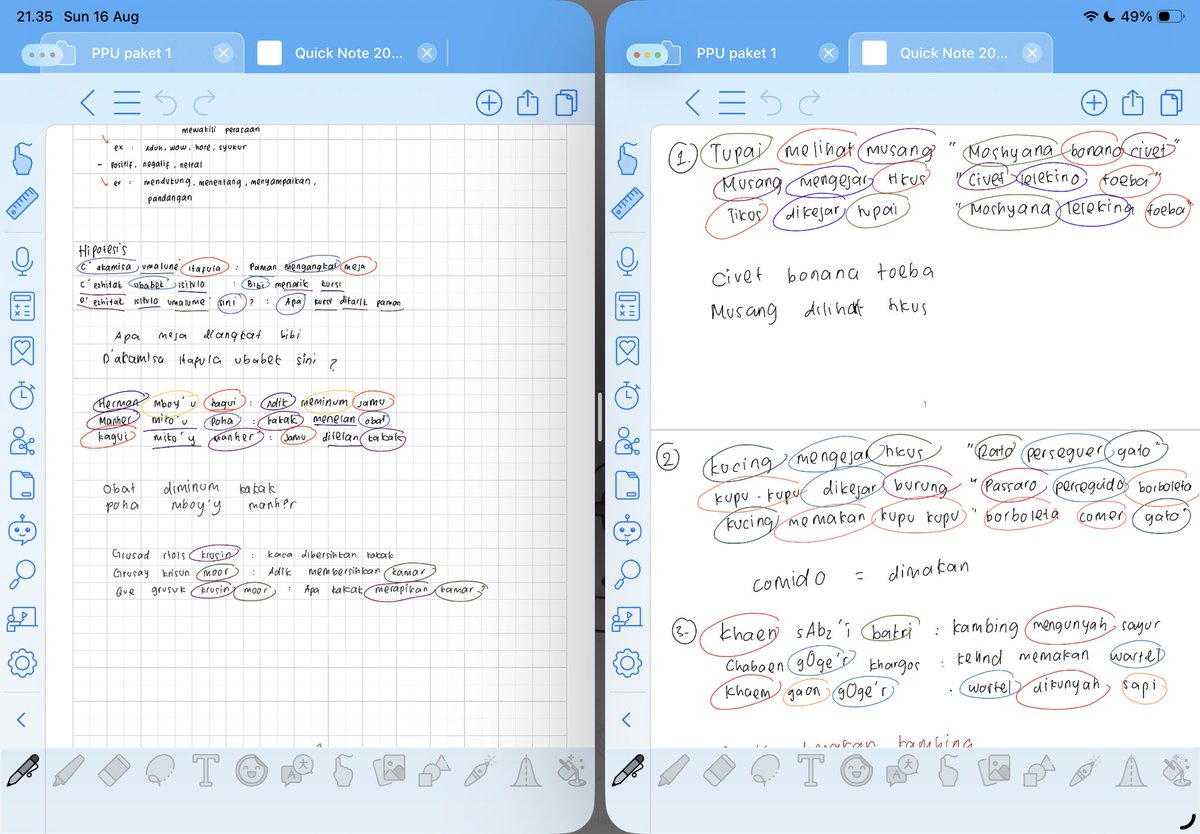 21.35 Sun 16 Aug
49%
PPU paket 1
Quick Note 20...
PPU paket 1
Quick Note 20...
mewakili perasaan
ex : aduh, wow, hore, syukur
- Positif, negatif, netral
ex : mendukung, menentang, menyampaikan,
pandangan
Hipotesis
C'akamisa umalune itafula : Paman mengangkat meja
C'eshitak ubabek isitulo : Bibi menarik kursi
D'eshitak isitulo umalume sini ? : Apa kursi ditarik paman
Apa meja diangkat bibi
D'akamisa itafula ubabek sini ?
Herman mboy'u kagui : Adik meminum jamu
Manher miko'u poha : kakak menelan obat
kagui miko'y manher : jamu ditelan kakak
Obat diminum kakak
poha mboy'y manher
Grusad rtols krusin : kaca dibersihkan kakak
Grusay krisun moor : Adik membersihkan kamar
Que grusuk krusin moor : Apa kakak merapikan kamar?
1. Tupai melihat musang "Moshyana bonano civet"
Musang mengejar tikus "Civet lelekino toeba"
Tikos dikejar tupai "Moshyana leleking toeba"
Civet bonana toeba
Musang dilihat tikus
1
2 kucing mengejar tikus "Rato perseguer gato"
kupu-kupu dikejar burung "Passaro perseguido borboleta
kucing memakan kupu kupu "borboleta comer gato"
comido = dimakan
3. khaen sAbz'i bakri : kambing mengunyah sayur
Chabaen gOge'r khargos : kelinci memakan wartel
khaem gaon gOge'r : wortel dikunyah sapi
kambing